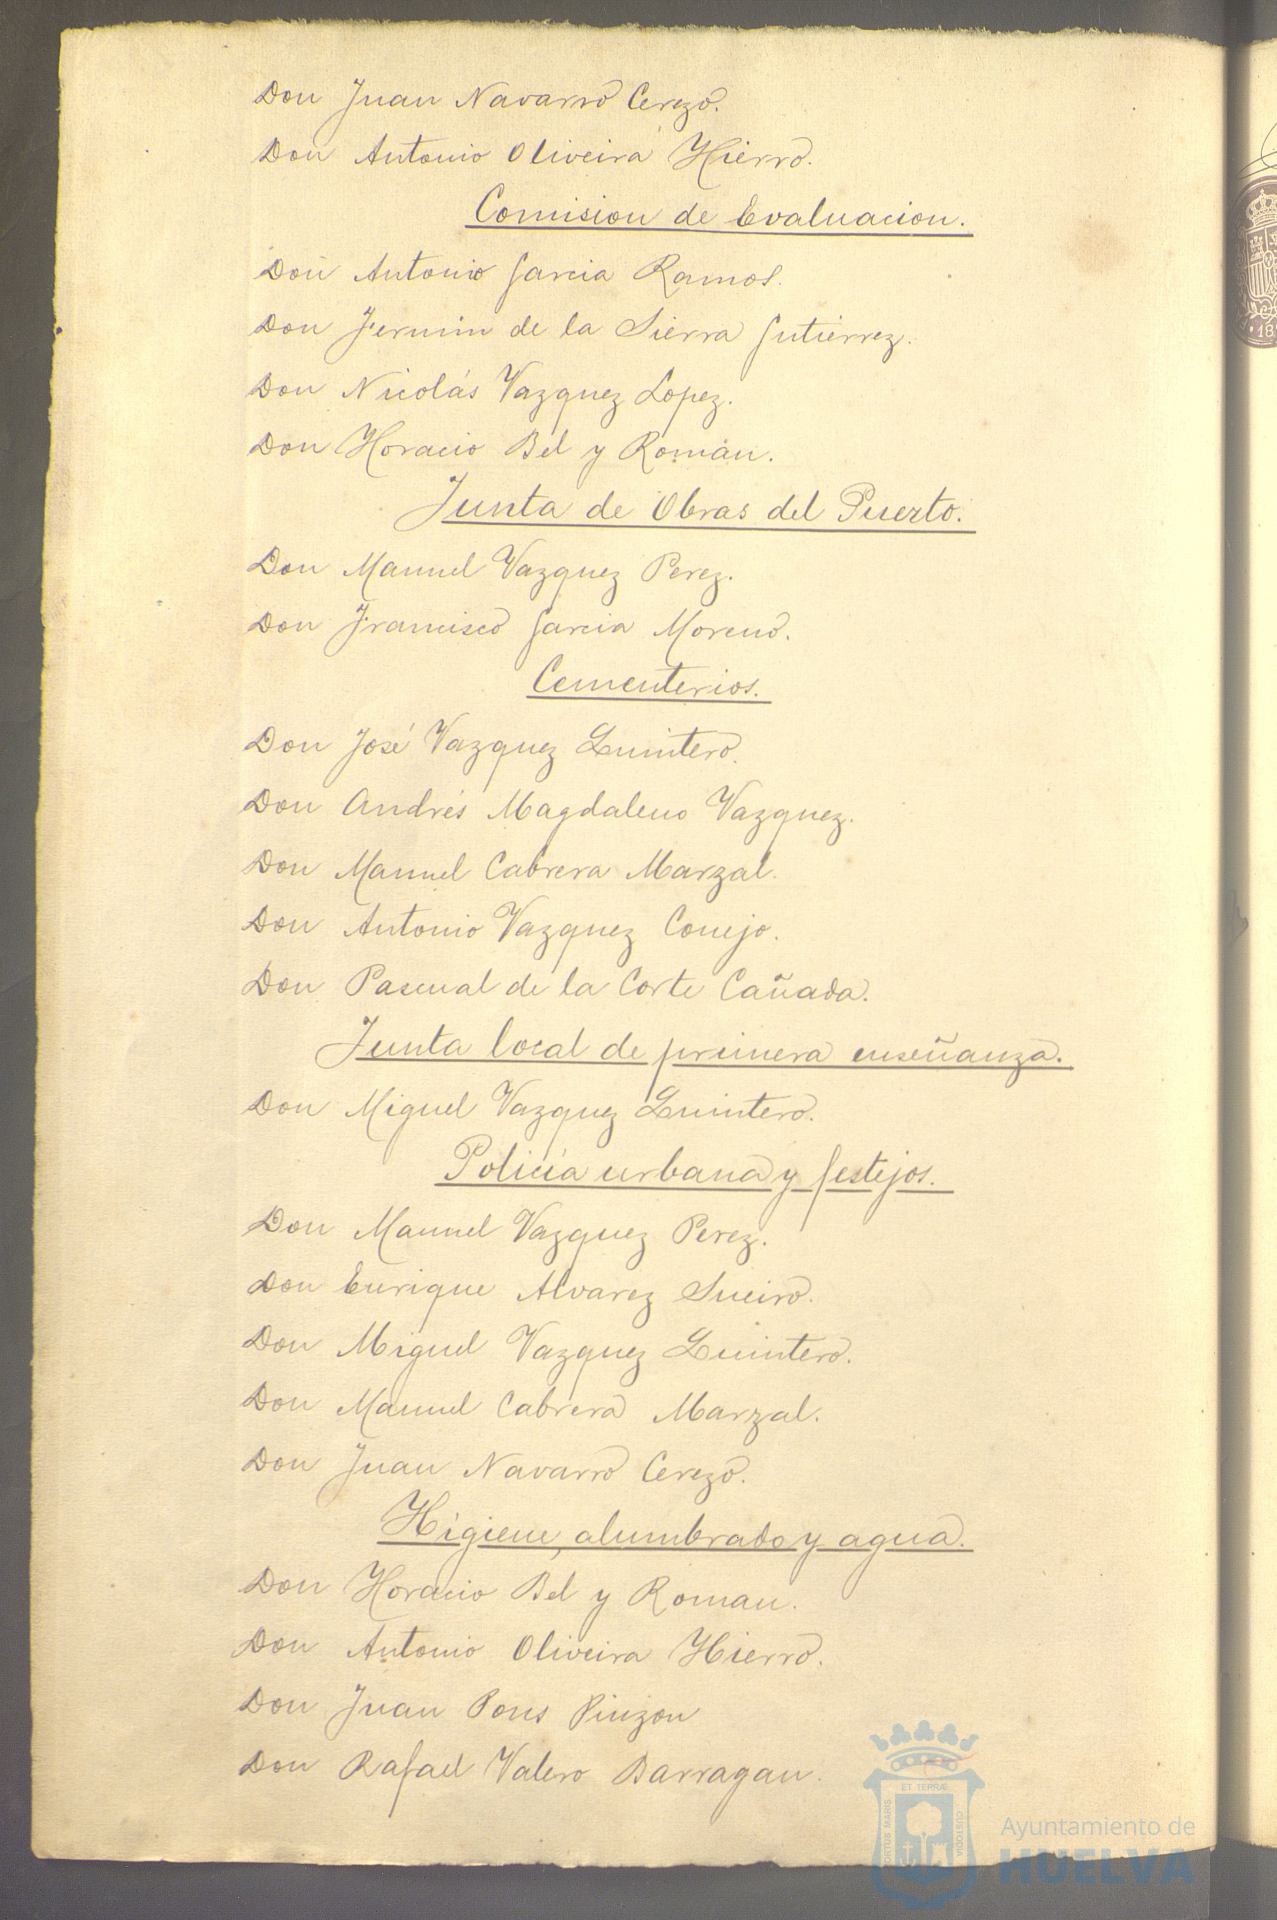 Don Juan Navarro Cerezo.
Don Antonio Oliveira Hierro.
Comision de Evaluacion.
Don Antonio Garcia Ramos.
Don Fermin de la Sierra Gutiérrez.
Don Nicolás Vazquez Lopez.
Don Horacio Bel y Román.
Junta de Obras del Puerto.
Don Manuel Vazquez Perez.
Don Francisco Garcia Moreno.
Cementerios.
Don José Vazquez Quintero.
Don Andrés Magdaleno Vazquez.
Don Manuel Cabrera Marzal.
Don Antonio Vazquez Conejo.
Don Pascual de la Corte Cañada.
Junta local de primera enseñanza.
Don Miguel Vazquez Quintero.
Policía urbana y festejos.
Don Manuel Vazquez Perez.
Don Enrique Alvarez Sueiro.
Don Miguel Vazquez Quintero.
Don Manuel Cabrera Marzal.
Don Juan Navarro Cerezo.
Higiene, alumbrado y agua.
Don Horacio Bel y Roman.
Don Antonio Oliveira Hierro.
Don Juan Pons Pinzon
Don Rafael Valero Barragan.
PORTUS MARIS ET TERRÆ CUSTODIA
Ayuntamiento de
HUELVA